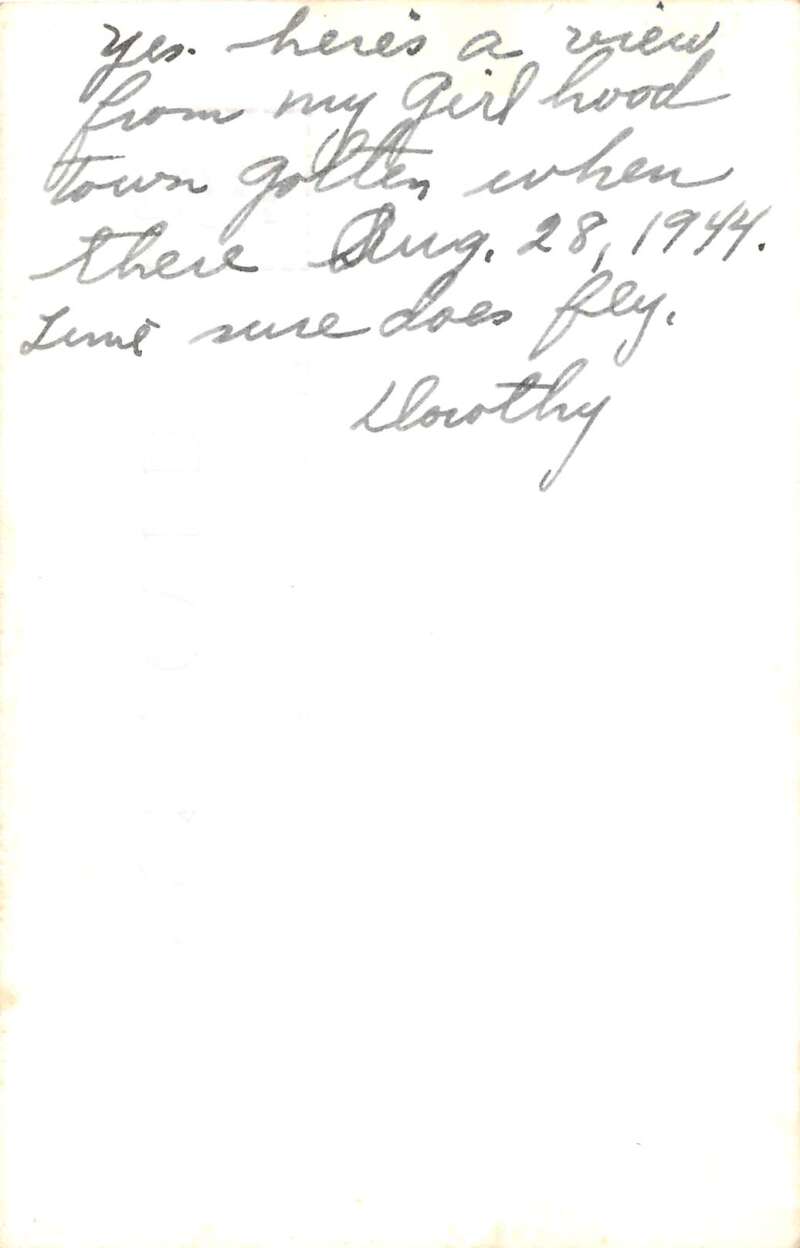 Yes. here's a view
from my Girl hood
town gotten when
there Aug. 28, 1944.
Time sure does fly.
Dorothy